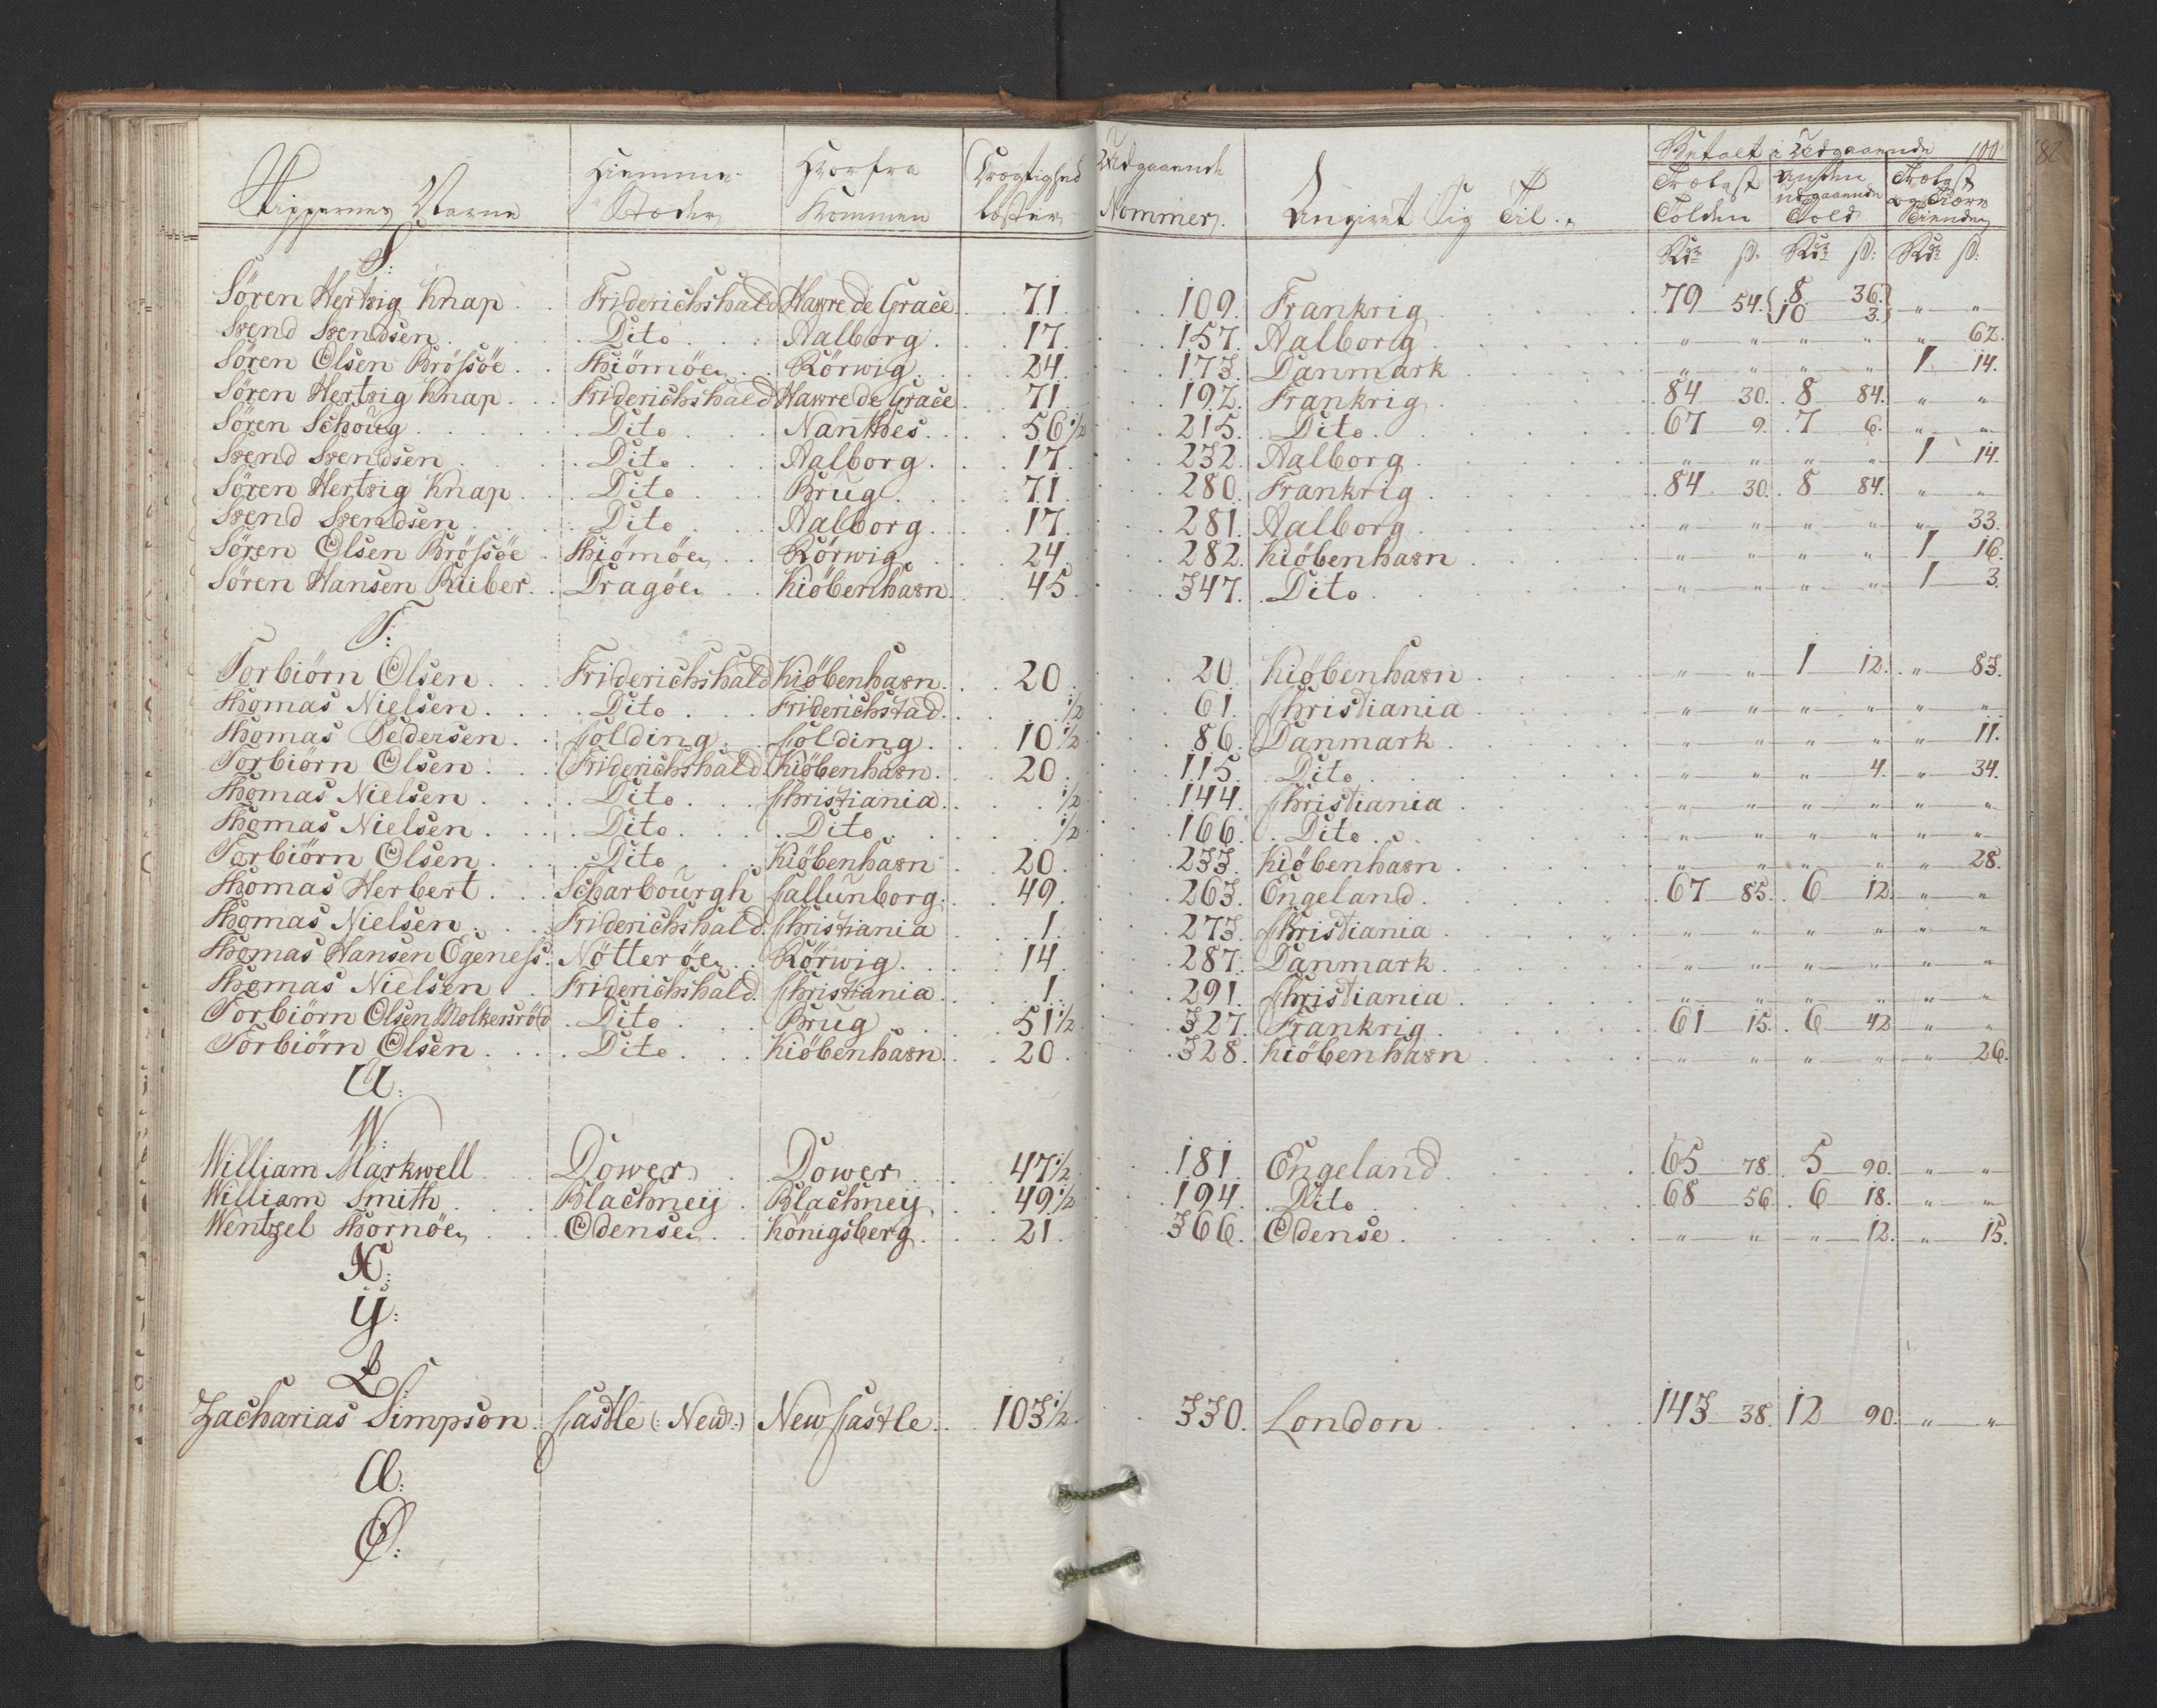 Skippernes Navne | Hiemme- Stæder | Hvorfra Kommen | Drægtighed Læster | Udgaaende Nommer. | Angivet Sig Til. | Betalt i Udgaaende 100
Trælast Tolden | anden udgaaende Told | Trælast og Tiære Tienden
Rdr ß. | Rdr ß: | Rdr ß:
S:
Sören Hertzig Knap | Friderichshald | Hawre de Grace | 71 | 109. | Frankrig | 79 54. | 8 36. 10 3. | " "
Svend Svendsen | Dito | Aalborg | 17 | 157. | Aalborg | " " | " " | " 62.
Sören Olsen Brössöe | Thiömöe | Rörwig | 24 | 173. | Danmark | " " | " " | 1 14.
Sören Hertzig Knap | Friderichshald | Hawre de Grace | 71 | 192. | Frankrig | 84 30. | 8 84. | " "
Sören Schoug | Dito | Nanthes | 56 1/2 | 215. | Dito | 67 9. | 7 6. | " "
Svend Svendsen | Dito | Aalborg | 17 | 232. | Aalborg | " " | " " | 1 14.
Sören Hertzig Knap | Dito | Brüg | 71 | 280. | Frankrig | 84 30. | 8 84. | " "
Svend Svendsen | Dito | Aalborg | 17 | 281. | Aalborg | " " | " " | " 33.
Sören Olsen Brössöe | Thiömöe | Rörwig | 24 | 282. | Kiöbenhavn | " " | " " | 1 16.
Sören Hansen Riiber | Dragöe | Kiöbenhavn | 45 | 347. | Dito | " " | " " | 1 3.
T:
Torbiörn Olsen | Friderichshald | Kiöbenhavn | 20 | 20. | Kiöbenhavn | " " | 1 12. | " 83.
Thomas Nielsen | Dito | Friderichstad | 1/2 | 61. | Christiania | " " | " " | " "
Thomas Pedersen | Colding | Colding | 10 1/2 | 86. | Danmark | " " | " " | " 11.
Torbiörn Olsen | Friderichshald | Kiöbenhavn | 20 | 115. | Dito | " " | " 4. | " 34.
Thomas Nielsen | Dito | Christiania | 1/2 | 144. | Christiania | " " | " " | " "
Thomas Nielsen | Dito | Dito | 1/2 | 166. | Dito | " " | " " | " "
Torbiörn Olsen | Dito | Kiöbenhavn | 20 | 233. | Kiöbenhavn | " " | " " | " 28.
Thomas Herbert | Scharbourgh | Callunborg | 49 | 263. | Engeland | 67 85. | 6 12. | " "
Thomas Nielsen | Friderichshald | Christiania | 1 | 273. | Christiania | " " | " " | " "
Thomas Hansen Egeness | Nötteröe | Rörwig | 14 | 287. | Danmark | " " | " " | " "
Thomas Nielsen | Friderichshald | Christiania | 1 | 291. | Christiania | " " | " " | " "
Torbiörn Olsen Molkersröd | Dito | Brüg | 51 1/2 | 327. | Frankrig | 61 15. | 6 42 | " "
Torbiörn Olsen | Dito | Kiöbenhavn | 20 | 328. | Kiöbenhavn | " " | " " | " 26.
U:
W:
William Markwell | Dower | Dower | 47 1/2 | 181. | Engeland | 65 78. | 5 90. | " "
William Smith | Blachneij | Blachneij | 49 1/2 | 194. | Dito | 68 56. | 6 18. | " "
Wentzel Thornöe | Odense | Königsberg | 21 | 366. | Odense | " " | " 12. | " 15.
X:
Y:
Z:
Zacharias Simpson | Castle (: New:) | New Castle | 103 1/2 | 330. | London | 143 38. | 12 90. | " "
Æ:
Ø: